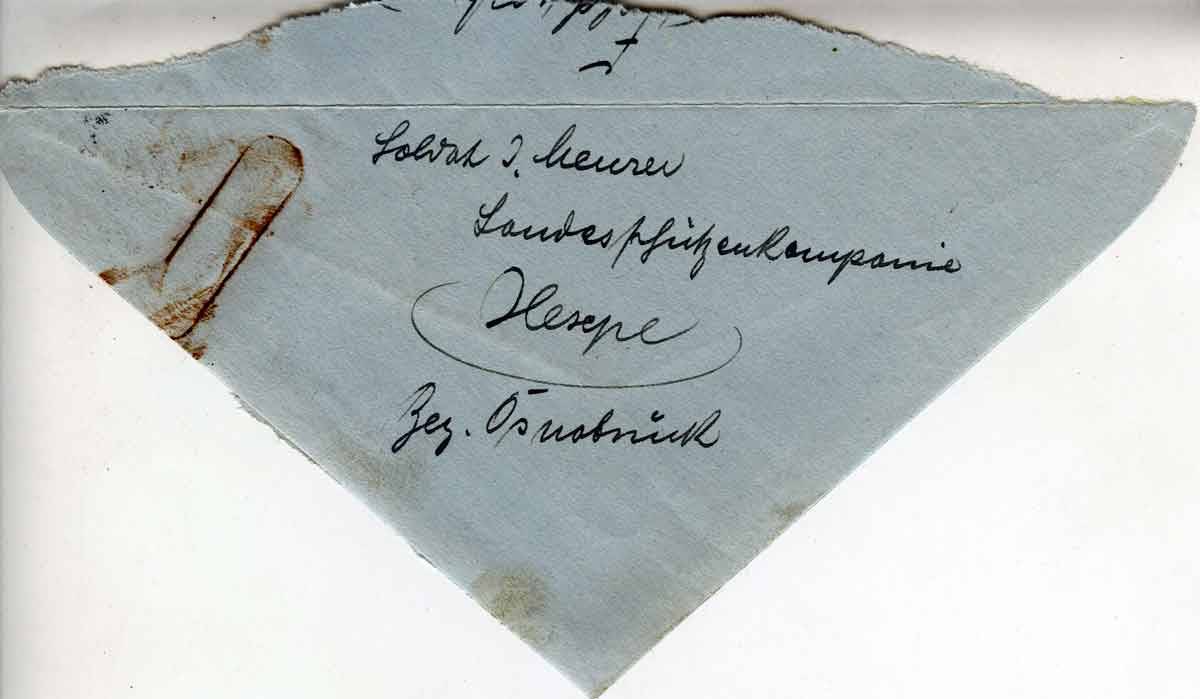 Soldat J. Meurer
Landesschützenkompanie
Hesepe
Bez. Osnabrück